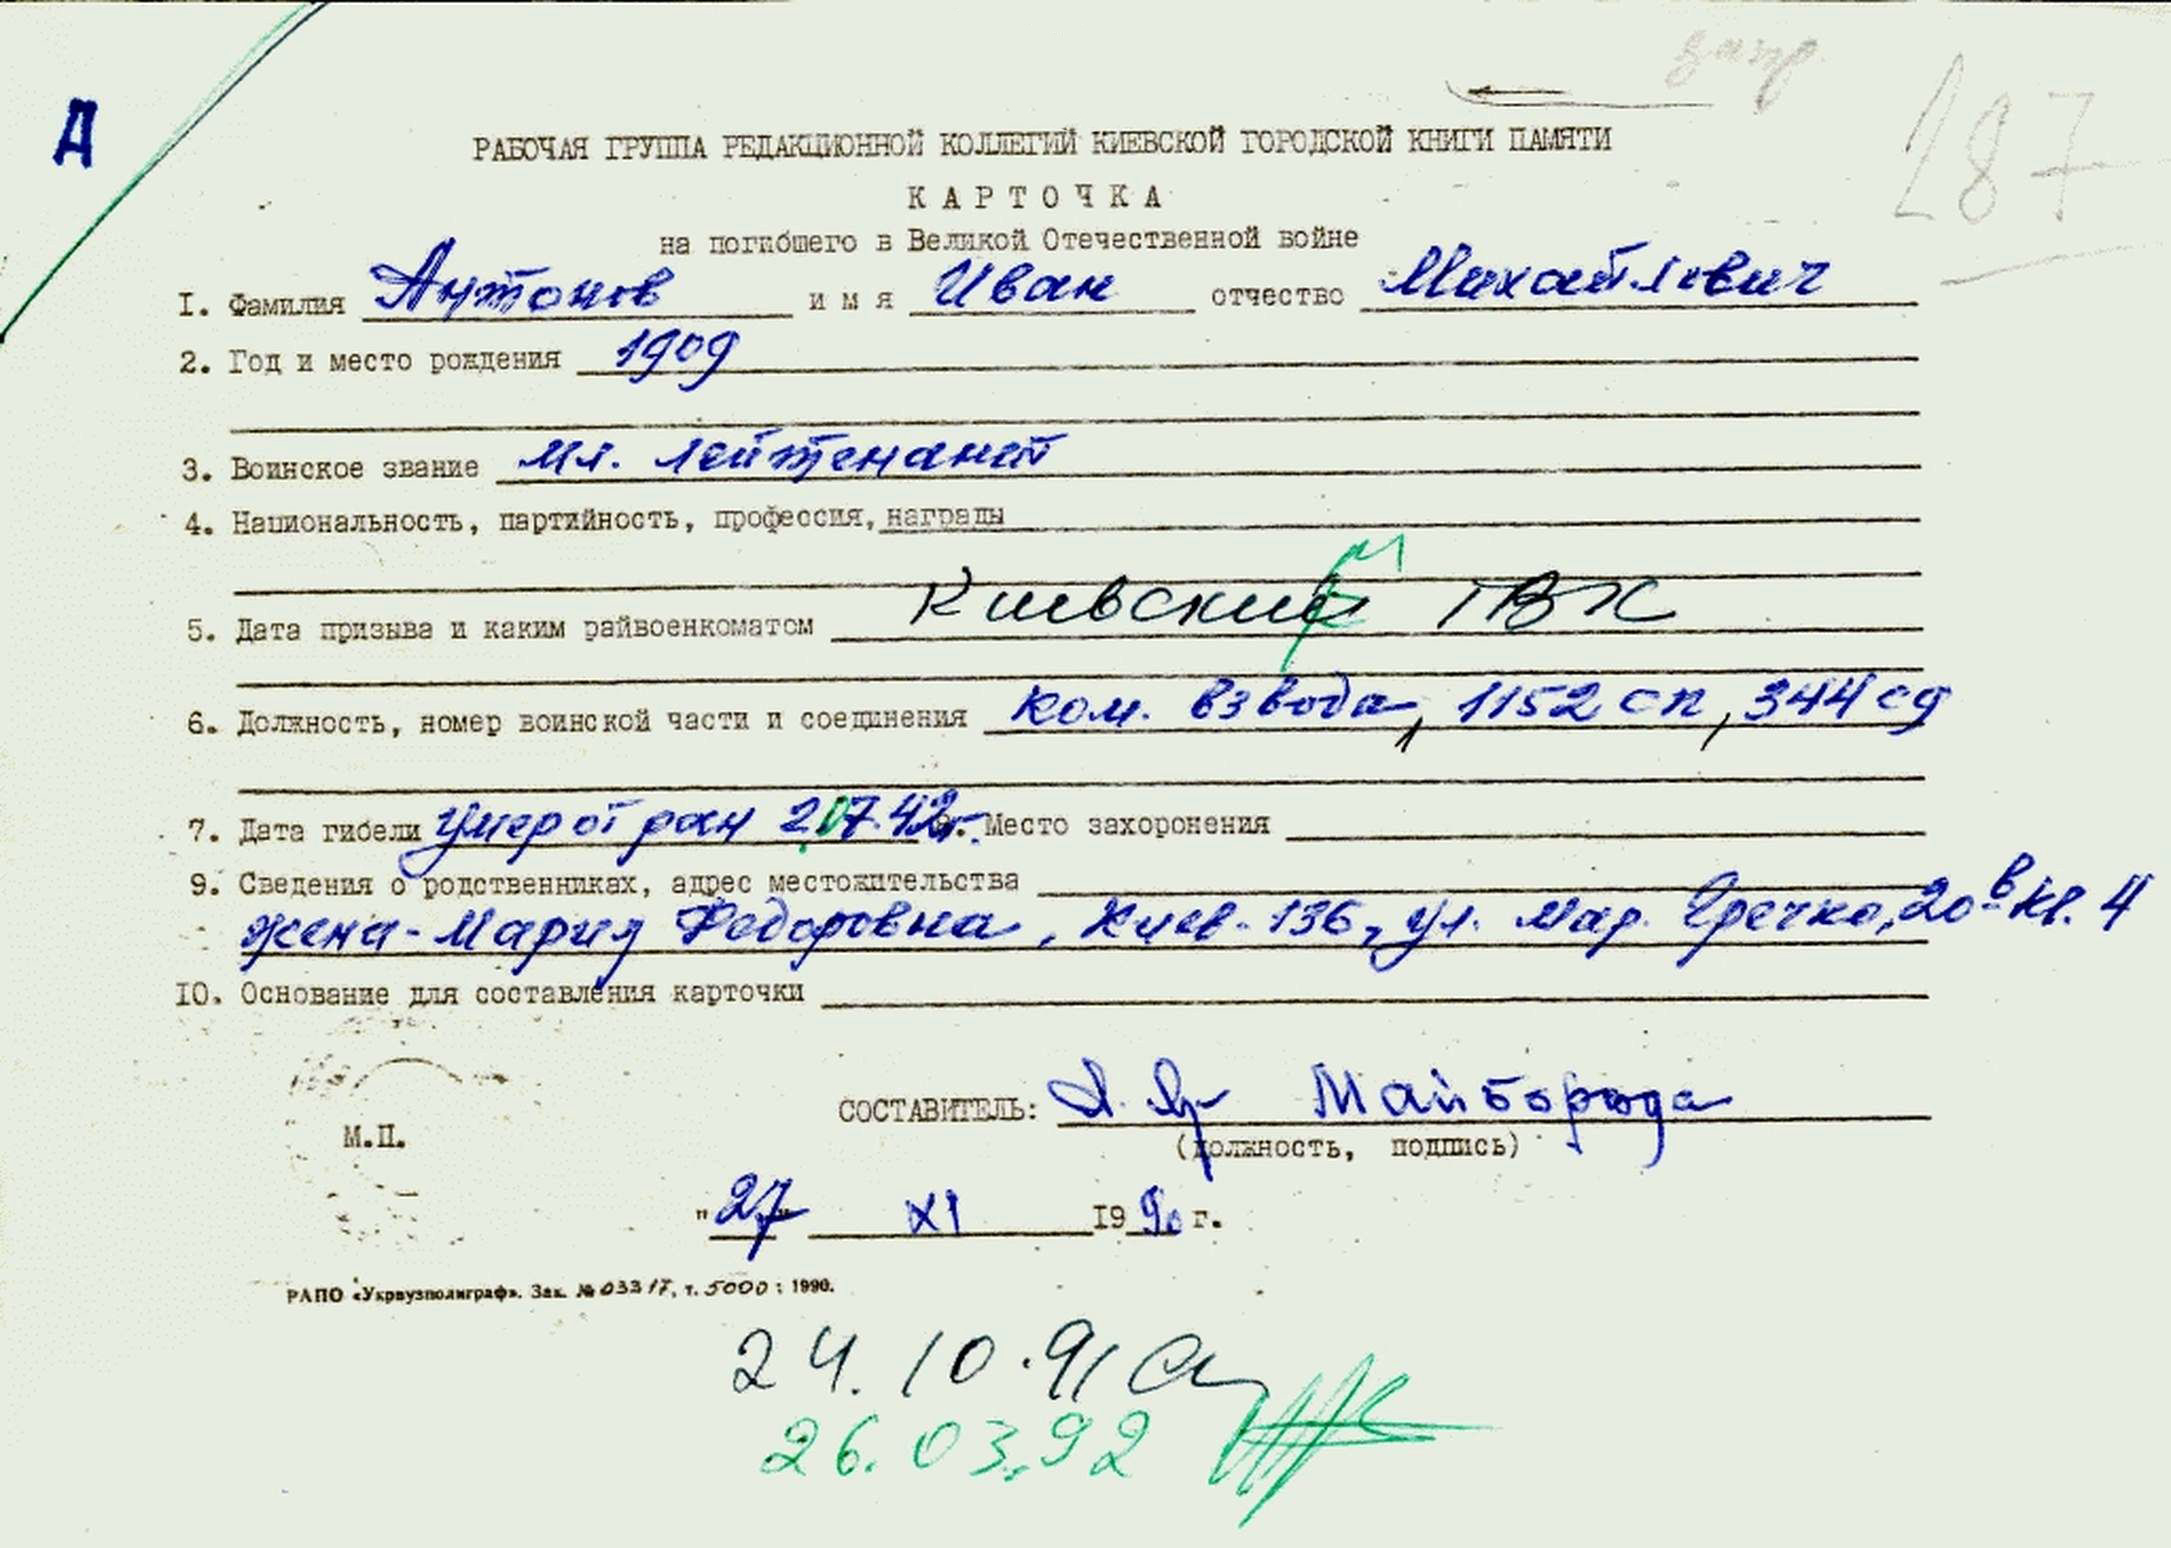 загр.
287
Д
РАБОЧАЯ ГРУППА РЕДАКЦИОННОЙ КОЛЛЕГИЙ КИЕВСКОЙ ГОРОДСКОЙ КНИГИ ПАМЯТИ
КАРТОЧКА
на погибшего в Великой Отечественной войне
I. Фамилия Антонов имя Иван отчество Михайлович
2. Год и место рождения 1909
3. Воинское звание мл. лейтенант
4. Национальность, партийность, профессия, награды
5. Дата призыва и каким райвоенкоматом Киевским ГВК
6. Должность, номер воинской части и соединения ком. взвода, 1152 сп, 344 сд
7. Дата гибели умер от ран 2.07.42г. 8. Место захоронения
9. Сведения о родственниках, адрес местожительства
жена - Мария Федоровна, Киев-136, ул. Мар. Гречко, 20-в кв. 4
10. Основание для составления карточки
СОСТАВИТЕЛЬ: Майборода
М.П.
(должность, подпись)
"27" XI 1990 г.
РАПО «Укрвузполиграф». Зак. № 03317, т. 5000 : 1990.
24.10.91
26.03.92